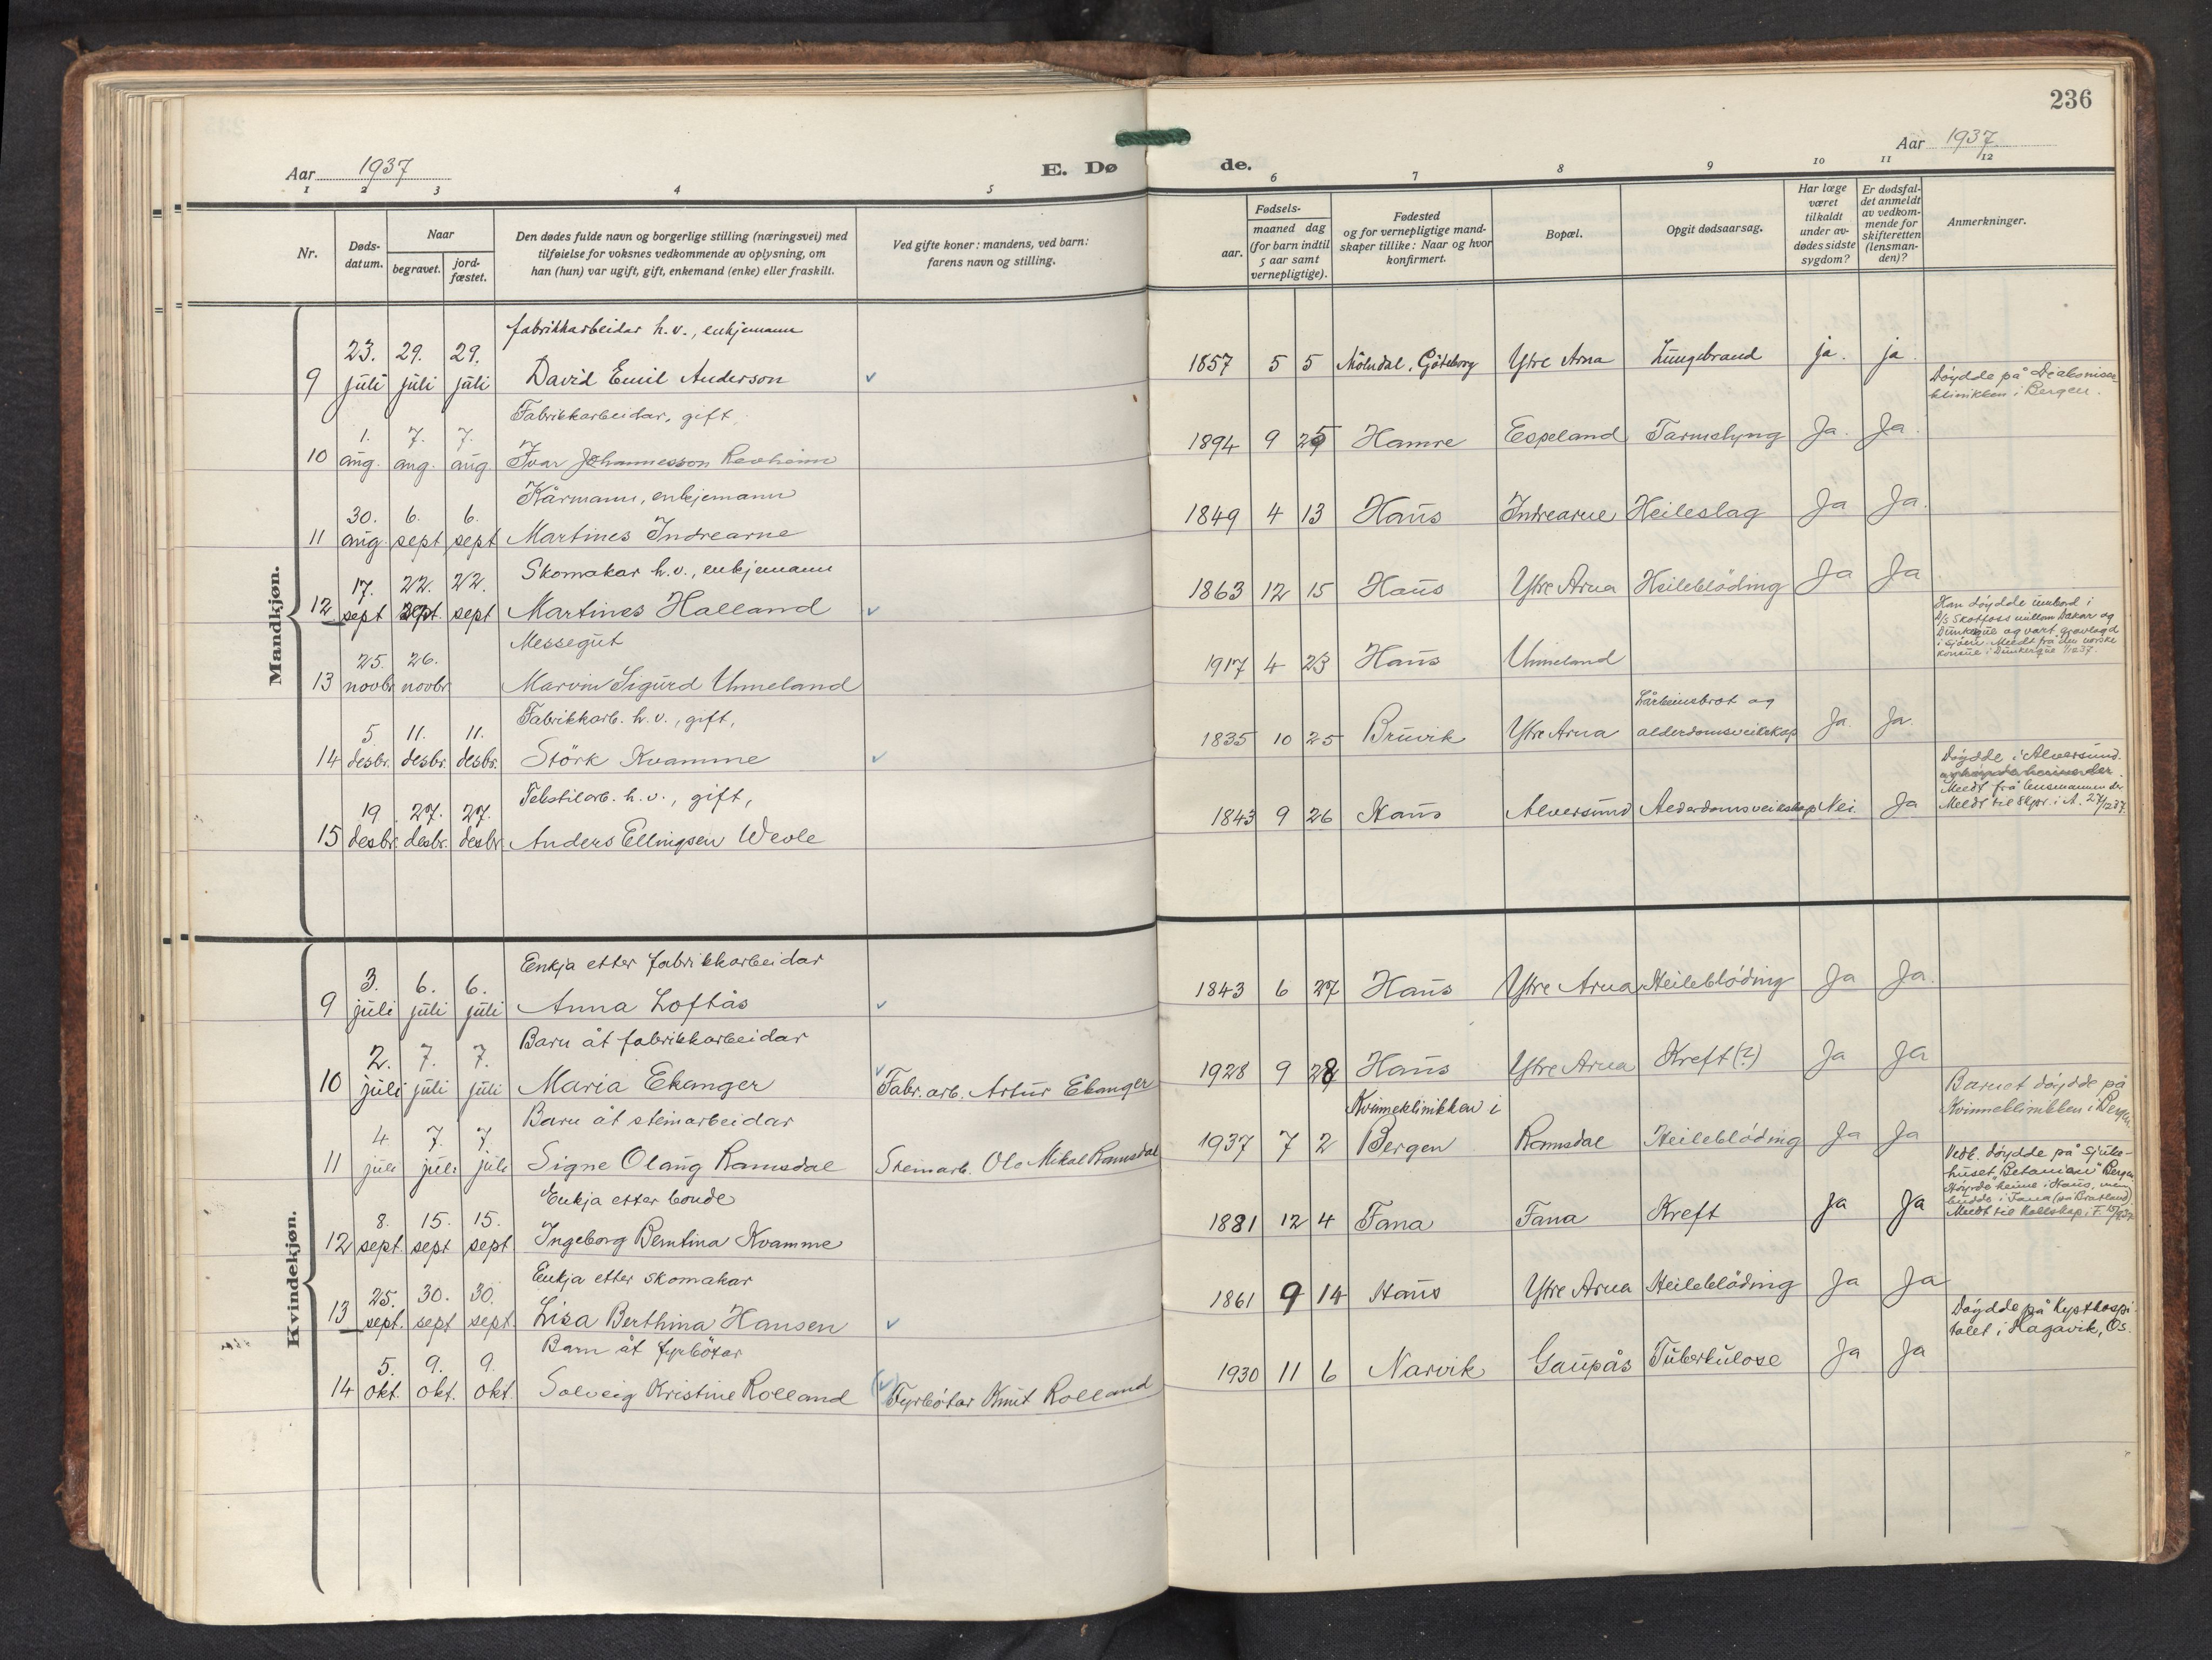 236
Aar 1937
E. Døde.
Aar 1937
1 2 3 4 5 6 7 8 9 10 11 12
Nr.
Døds-
datum.
Naar
begravet.
jord-
fæstet.
Den dødes fulde navn og borgerlige stilling (næringsvei) med
tilføielse for voksnes vedkommende av oplysning, om
han (hun) var ugift, gift, enkemand (enke) eller fraskilt.
Ved gifte koner: mandens, ved barn:
farens navn og stilling.
Fødsels-
aar.
maaned dag
(for barn indtil
5 aar samt
vernepligtige).
Fødested
og for vernepligtige mand-
skaper tillike: Naar og hvor
konfirmert.
Bopæl.
Opgit dødsaarsag.
Har læge
været
tilkaldt
under av-
dødes sidste
sygdom?
Er dødsfal-
det anmeldt
av vedkom-
mende for
skifteretten
(lensman-
den)?
Anmerkninger.
Mandkjøn.
fabrikkarbeidar h.v., enkjemann
9 23. juli 29. juli 29. juli David Emil Anderson 1857 5 5 Mölndal, Göteborg Ytre Arna Lungebrand ja. ja.
Döydde på Diakonisse-
klinikken i Bergen.
Fabrikkarbeidar, gift,
10 1. aug. 7. aug. 7. aug Ivar Johannesson Revheim 1894 9 29 Hamre Espeland Tarmslyng Ja. Ja.
Kårmann, enkjemann
11 30. aug. 6. sept 6. sept Martines Indrearne 1849 4 13 Haus Indrearne Heileslag Ja Ja.
Skomakar h.v., enkjemann
12 17. sept 22. sept. 22. sept Martines Halland 1863 12 15 Haus Ytre Arna Heileblöding Ja Ja
Messegut
13 25. novbr 26. novbr Marvin Sigurd Unneland 1917 4 23 Haus Unneland
Han döydde umbord i
D/S Skotfoss millom Dakar og
Dunkerque og vart gravlagd
i sjöen. Meldt frå den norske
konsul i Dunkerque
Fabrikkarb. h.v., gift,
14 5 desbr. 11. desbr. 11. desbr. Störk Kvamme 1835 10 25 Bruvik Ytre Arna Lårbeinsbrot og
alderdomsveikskap Ja. Ja.
Tekstilarb. h.v., gift,
15 19 desbr. 27. desbr. 27. desbr. Anders Ellingsen Wevle 1843 9 26 Haus Alversund Alderdomsveikskap Nei Ja
Döydde i Alversund.
Meldt frå lensmannen der
Meldt til skpr. i A. 27/12 37.
Kvindekjøn.
Enkja etter fabrikkarbeidar
9 3. juli 6. juli 6. juli Anna Loftås 1843 6 27 Haus Ytre Arna Heileblöding Ja Ja.
Barn åt fabrikkarbeidar
10 2. juli 7. juli 7. juli Maria Ekanger Fabr.arb. Artur Ekanger 1928 9 28 Haus Ytre Arna Kreft(?) Ja Ja
Barn åt steinarbeidar
11 4. juli 7. juli 7. juli Signe Olaug Ramsdal Steinarb. Ola Mikal Ramsdal 1937 7 2 Kvinneklinikken i
Bergen Ramsdal Heileblöding Ja Ja
Barnet döydde på
Kvinneklinikken i Bergen.
Enkja etter bonde
12 8. sept. 15. sept 15. sept Ingeborg Berntina Kvamme 1881 12 4 Fana Fana Kreft Ja Ja
Vedk. döydde på sjuke-
huset "Betanien" Bergen.
Höyrde heime i Haus, men
budde i Fana (på Bratland)
Enkja etter skomakar
13 25. sept. 30. sept 30. sept. Lisa Berthina Hansen 1861 9 14 Haus Ytre Arna Heileblöding Ja Ja
Barn åt fyrbötar
14 5. okt. 9. okt. 9. okt. Solveig Kristine Rolland Fyrbötar Knut Rolland 1930 11 6 Narvik Gaupås Tuberkulose Ja Ja
Döydde på Kysthospi-
talet i Hagavik, Os.